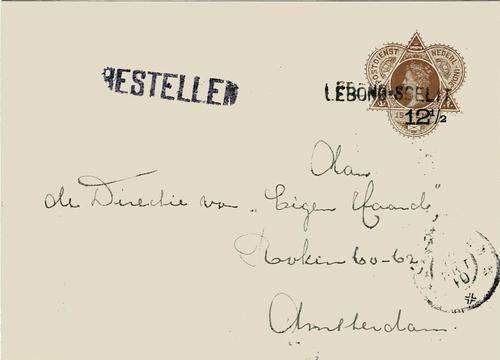 BESTELLEN
POSTDIENST NEDERL-INDIË
LEBONG-SOELIT
15
12 1/2
Aan
de Directie van „Eigen Haard",
Rokin 60-62
Amsterdam.